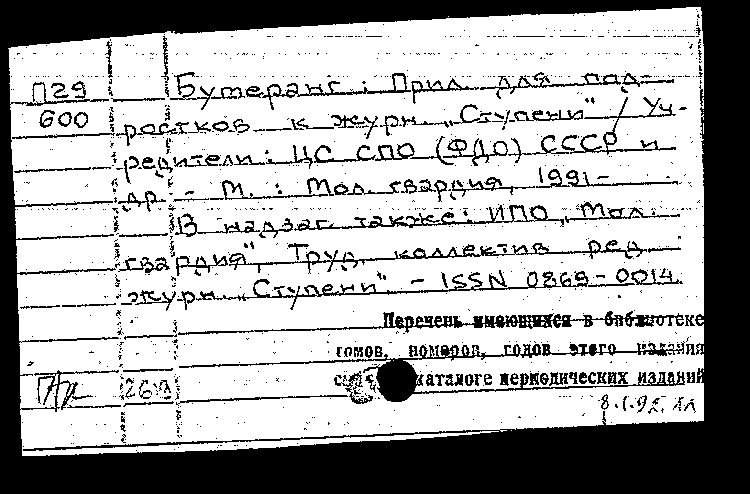 П29
600
Бумеранг : Прил. для под-
ростков к журн. „Ступени" / Уч-
редители: ЦС СПО (ФДО) СССР и
др. - М. : Мол. гвардия, 1991-
В надзаг. также: ИПО „Мол.
гвардия", Труд. коллектив ред.
журн. „Ступени" - ISSN 0869-0014.
Перечень имеющихся в библиотеке
томов, номеров, годов этого издания
каталоге периодических изданий
8.1.92.